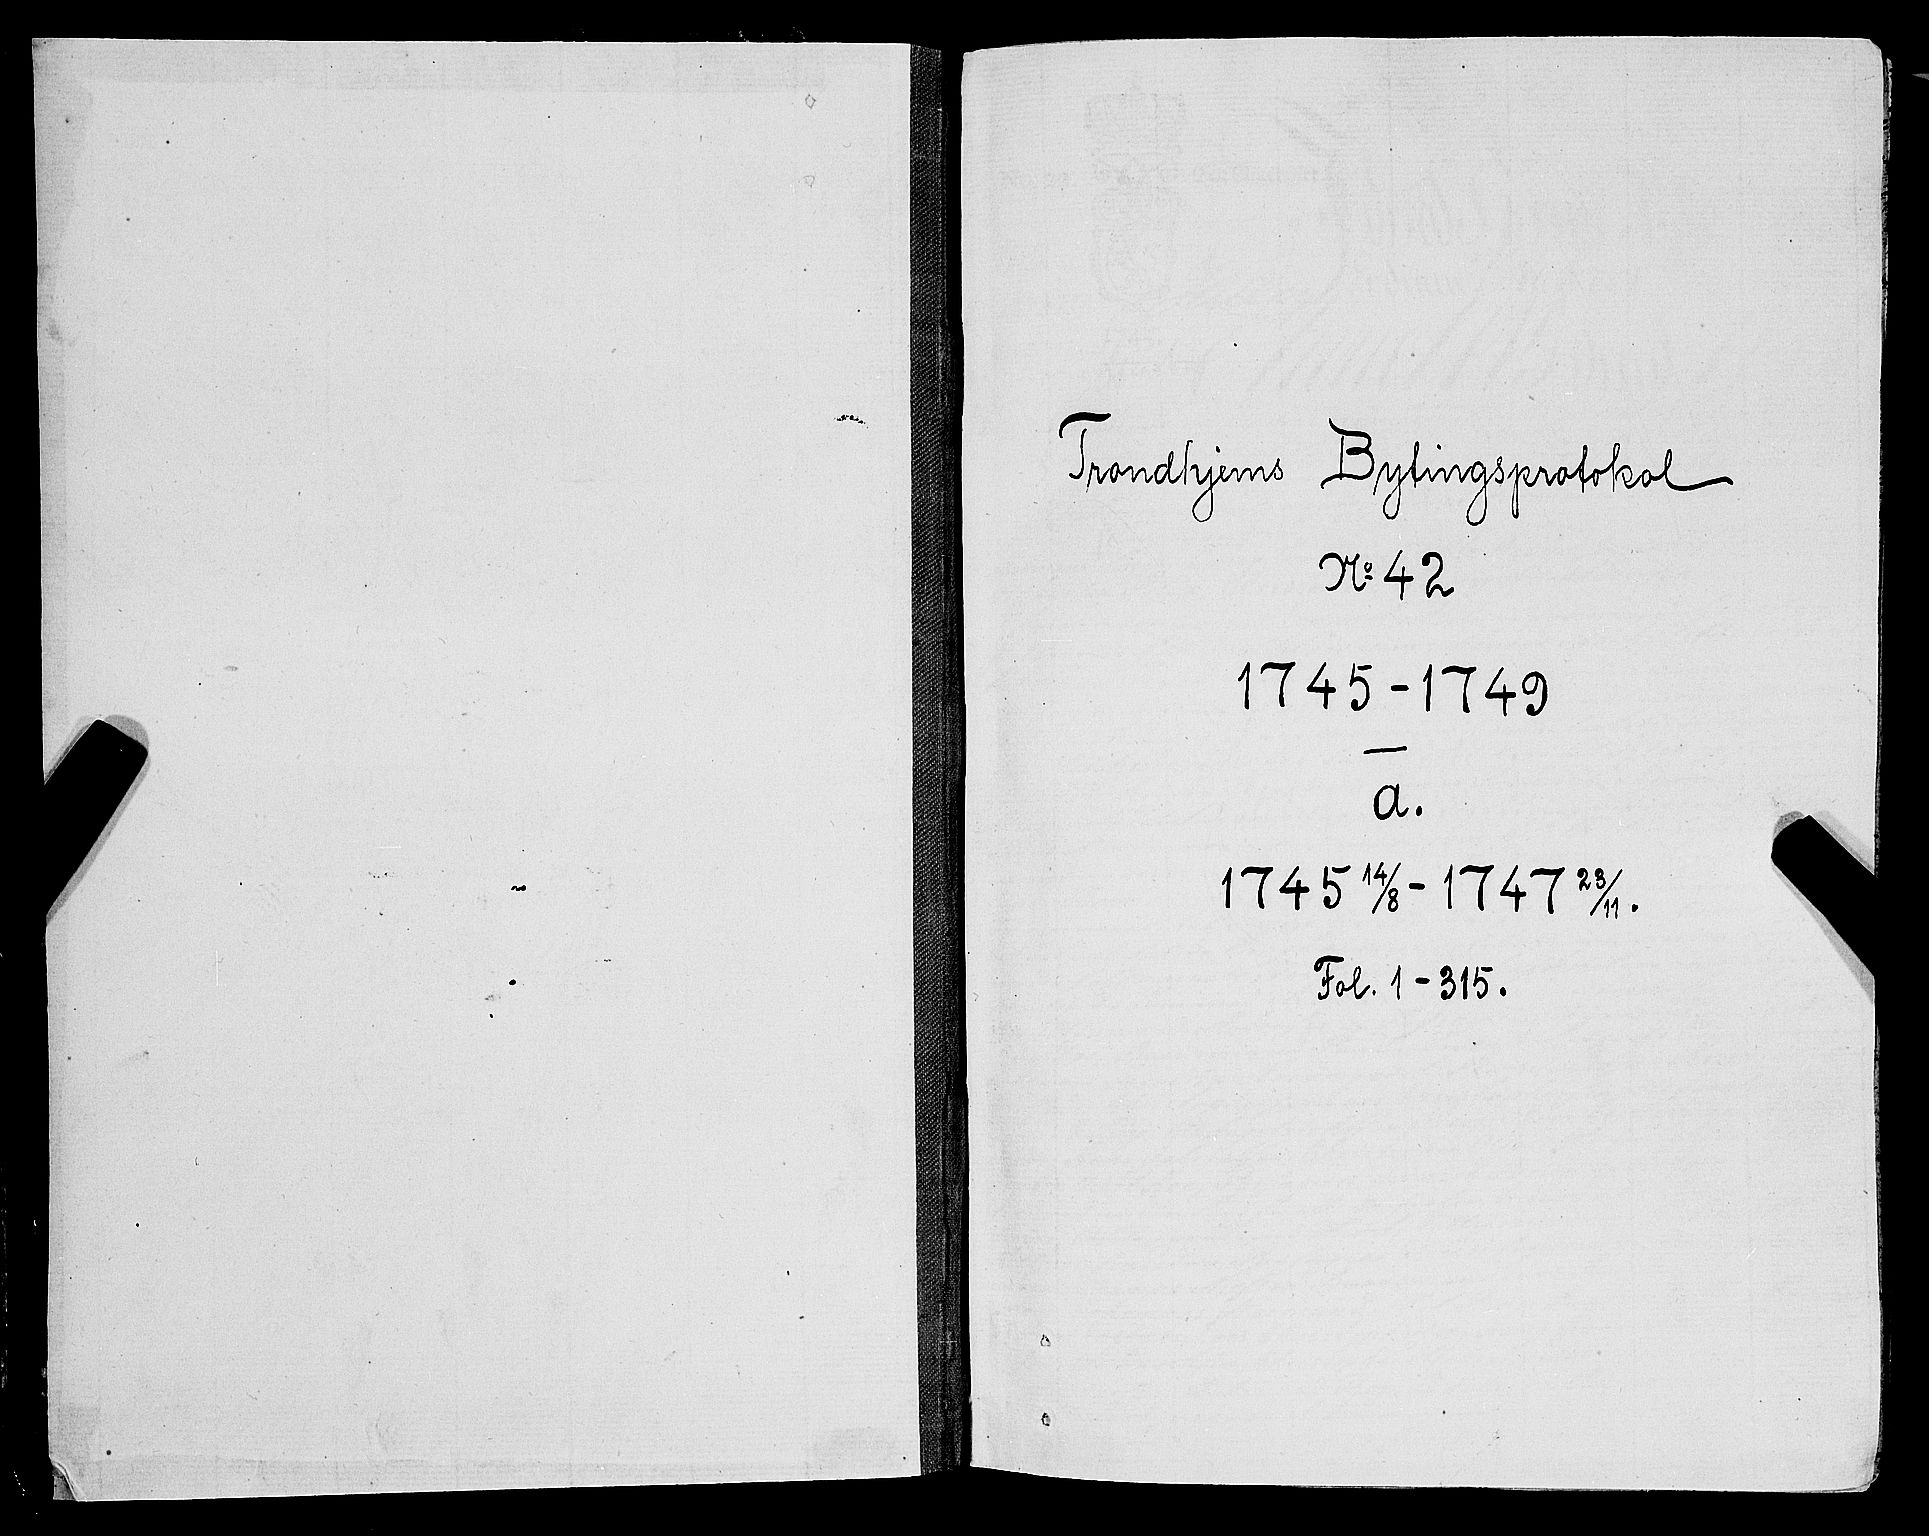 Trondhjems Bytingsprotokol
No 42
1745-1749
a.
1745 14/8 - 1747 23/11.
Fol. 1-315.